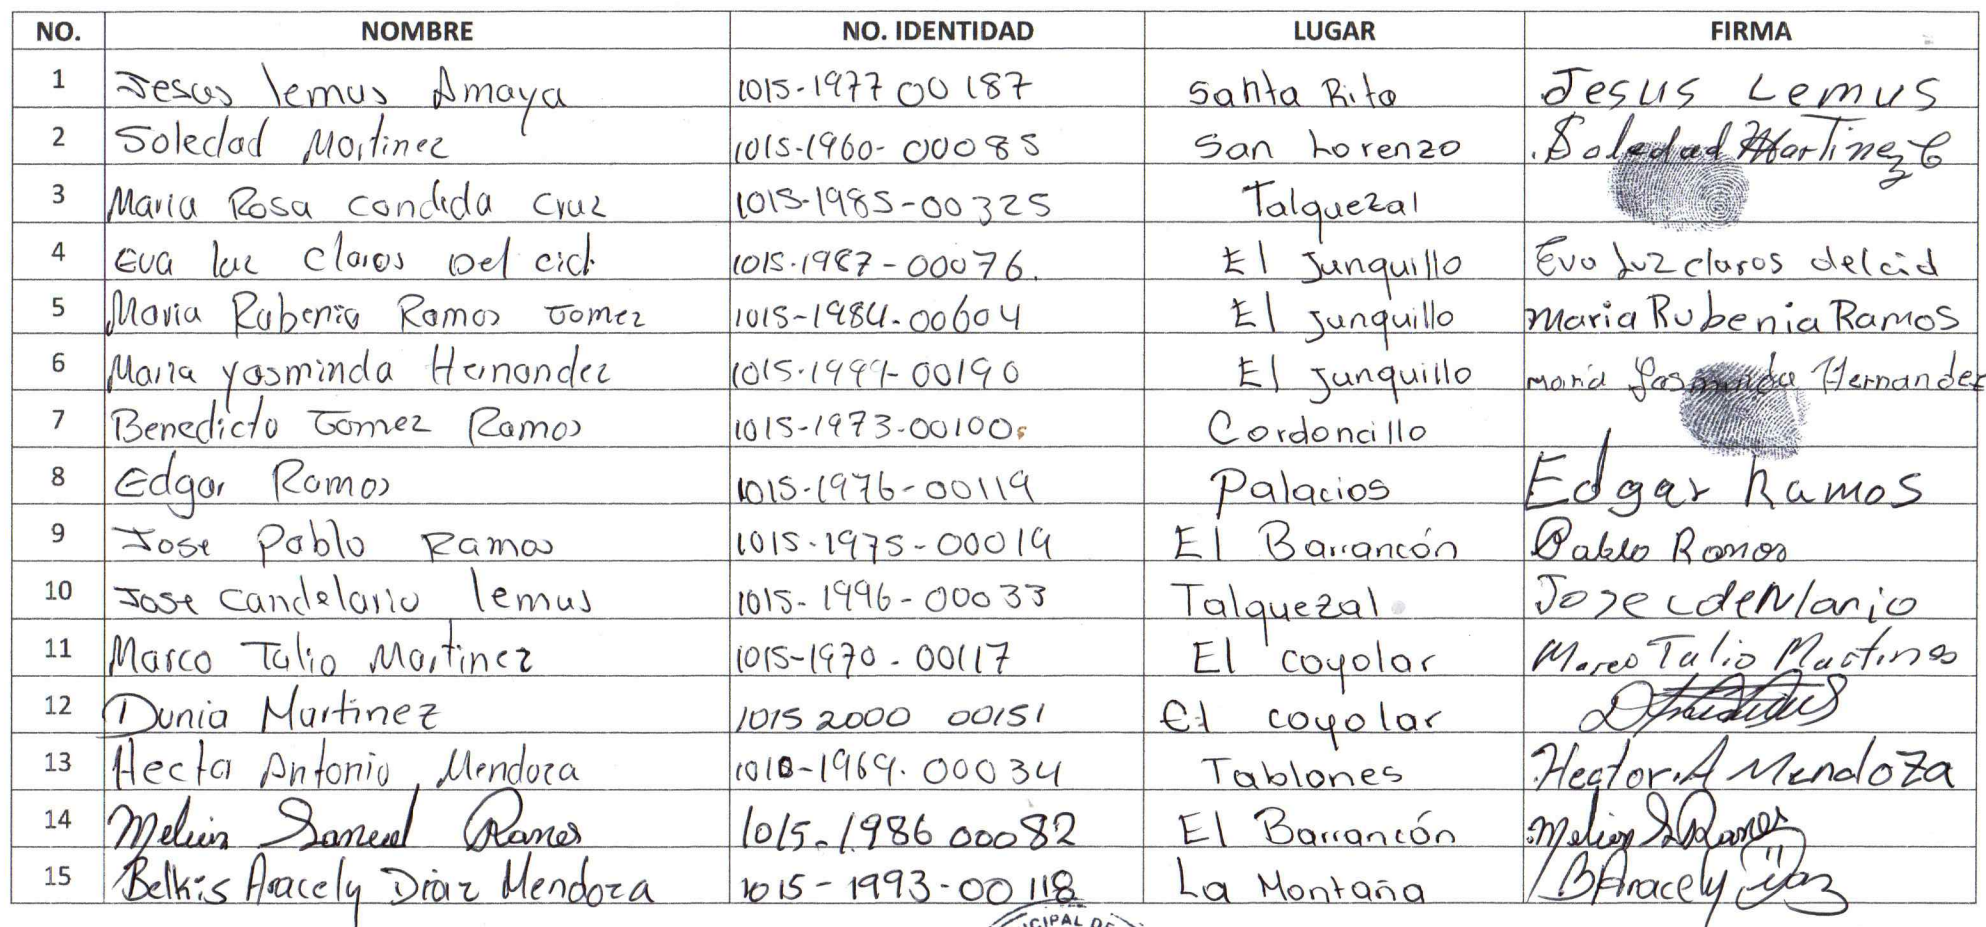 NO. NOMBRE NO. IDENTIDAD LUGAR FIRMA
1 Jesus lemus Amaya 1015-1977 00 187 Santa Rita Jesus Lemus
2 Soledad Martinez 1015-1960-00085 San Lorenzo Soledad Martinez C
3 Maria Rosa Candida Cruz 1015-1985-00325 Talquezal
4 Eva luz Claros Del cid. 1015-1987-00076. El Junquillo Eva Luz claros del cid
5 Maria Rubenia Ramos Gomez 1015-1984-00604 El Junquillo Maria Rubenia Ramos
6 Maria yasminda Hernandez 1015-1999-00190 El Junquillo Maria Yasminda Hernandez
7 Benedicto Gomez Ramos 1015-1973-00100 Cordoncillo
8 Edgar Ramos 1015-1976-00119 Palacios Edgar Ramos
9 Jose Pablo Ramos 1015-1975-00019 El Barrancón Pablo Ramos
10 Jose Candelario lemus 1015-1996-00033 Talquezal Jose
11 Marco Tulio Martinez 1015-1970-00117 El coyolar Marco Tulio Martines
12 Dunia Martinez 1015 2000 00151 El coyolar
13 Hector Antonio Mendoza 1010-1969-00034 Tablones Hector.A Mendoza
14 Melvin Ramos 1015-1986 00082 El Barrancón Melvin S Ramos
15 Belkis Aracely Diaz Mendoza 1015-1993-00118 La Montaña B Aracely Diaz
CIPAL DE